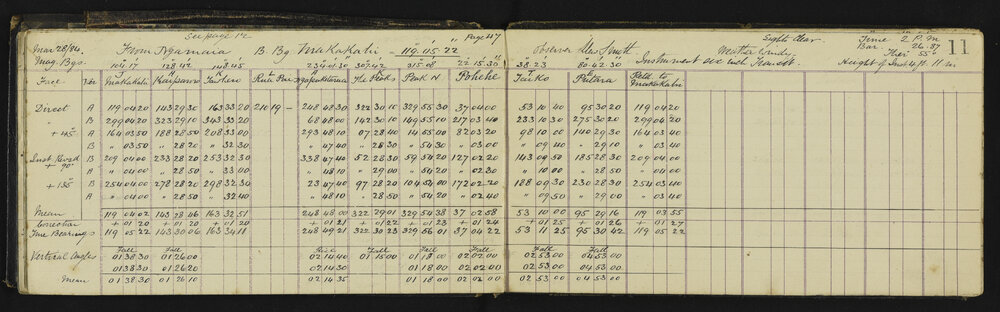 See page 12
Page 47
Sights Clear
Time 2 P.m
11
Mar 28/84
From Ngamaia B. Bg Makakahi 119.05.22
Observer Stew Smith
Weather Windy
Bar 26.87
Ther 55°
Mag. Bgs. 104.17 128.42 148.45 234.01.30 307.42 315.08 22.15.30 38.23 80.42.30
Instrument six inch Transit
Height of Inst 4 ft. 11 in
Face Makakahi Kaiparoro Puke Par Peak N Pohehe Taiko Patara Makakahi
Direct A 119 04 20 143 29 30 163 33 20 210 19 — 248 48 30 322 30 10 329 55 30 37 04 00 53 10 40 95 30 20 119 04 20
" B 299 04 20 323 29 10 343 33 20 68 48 00 142 30 10 149 55 10 217 03 40 233 10 30 275 30 20 299 04 20
+ 45° A 164 03 50 188 28 50 208 33 00 293 48 10 07 28 40 14 55 00 82 03 20 98 10 00 140 29 30 164 03 40
B " 03 50 " 28 20 " 32 30 " 47 40 " 28 30 " 54 30 " 03 00 " 09 40 " 29 10 " 04 00
Inst Revsd + 90° B 209 04 00 233 28 20 253 32 30 338 47 40 52 28 30 59 54 20 127 02 20 143 09 50 185 28 30 209 04 00
A " 04 00 " 28 50 " 33 00 " 48 10 " 29 00 " 54 20 " 02 30 " 10 00 " 28 50 " 04 00
+ 135° B 254 04 00 278 28 20 298 32 30 23 47 40 97 28 20 104 54 00 172 02 20 188 09 30 230 28 30 254 03 40
A " 04 00 " 28 50 " 32 40 " 48 10 " 28 50 " 54 20 " 02 40 " 09 50 " 29 00 " 04 00
Mean 119 04 02 143 28 46 163 32 51 248 48 00 322 29 01 329 54 38 37 02 58 53 10 00 95 29 16 119 03 55
Correction + 01 20 + 01 20 + 01 20 + 01 21 + 01 22 + 01 23 + 01 24 + 01 25 + 01 26 + 01 27
True Bearings 119 05 22 143 30 06 163 34 11 248 49 21 322 30 23 329 56 01 37 04 22 53 11 25 95 30 42 119 05 22
Fall Fall Rise Fall Fall Fall Fall Fall
Vertical Angles 01 38 30 01 26 00 02 14 40 01 15 00 01 18 00 02 02 00 02 53 00 04 53 00
01 38 30 01 26 20 02 14 30 01 18 00 02 02 00 02 53 00 04 53 00
Mean 01 38 30 01 26 10 02 14 35 01 18 00 02 02 00 02 53 00 04 53 00